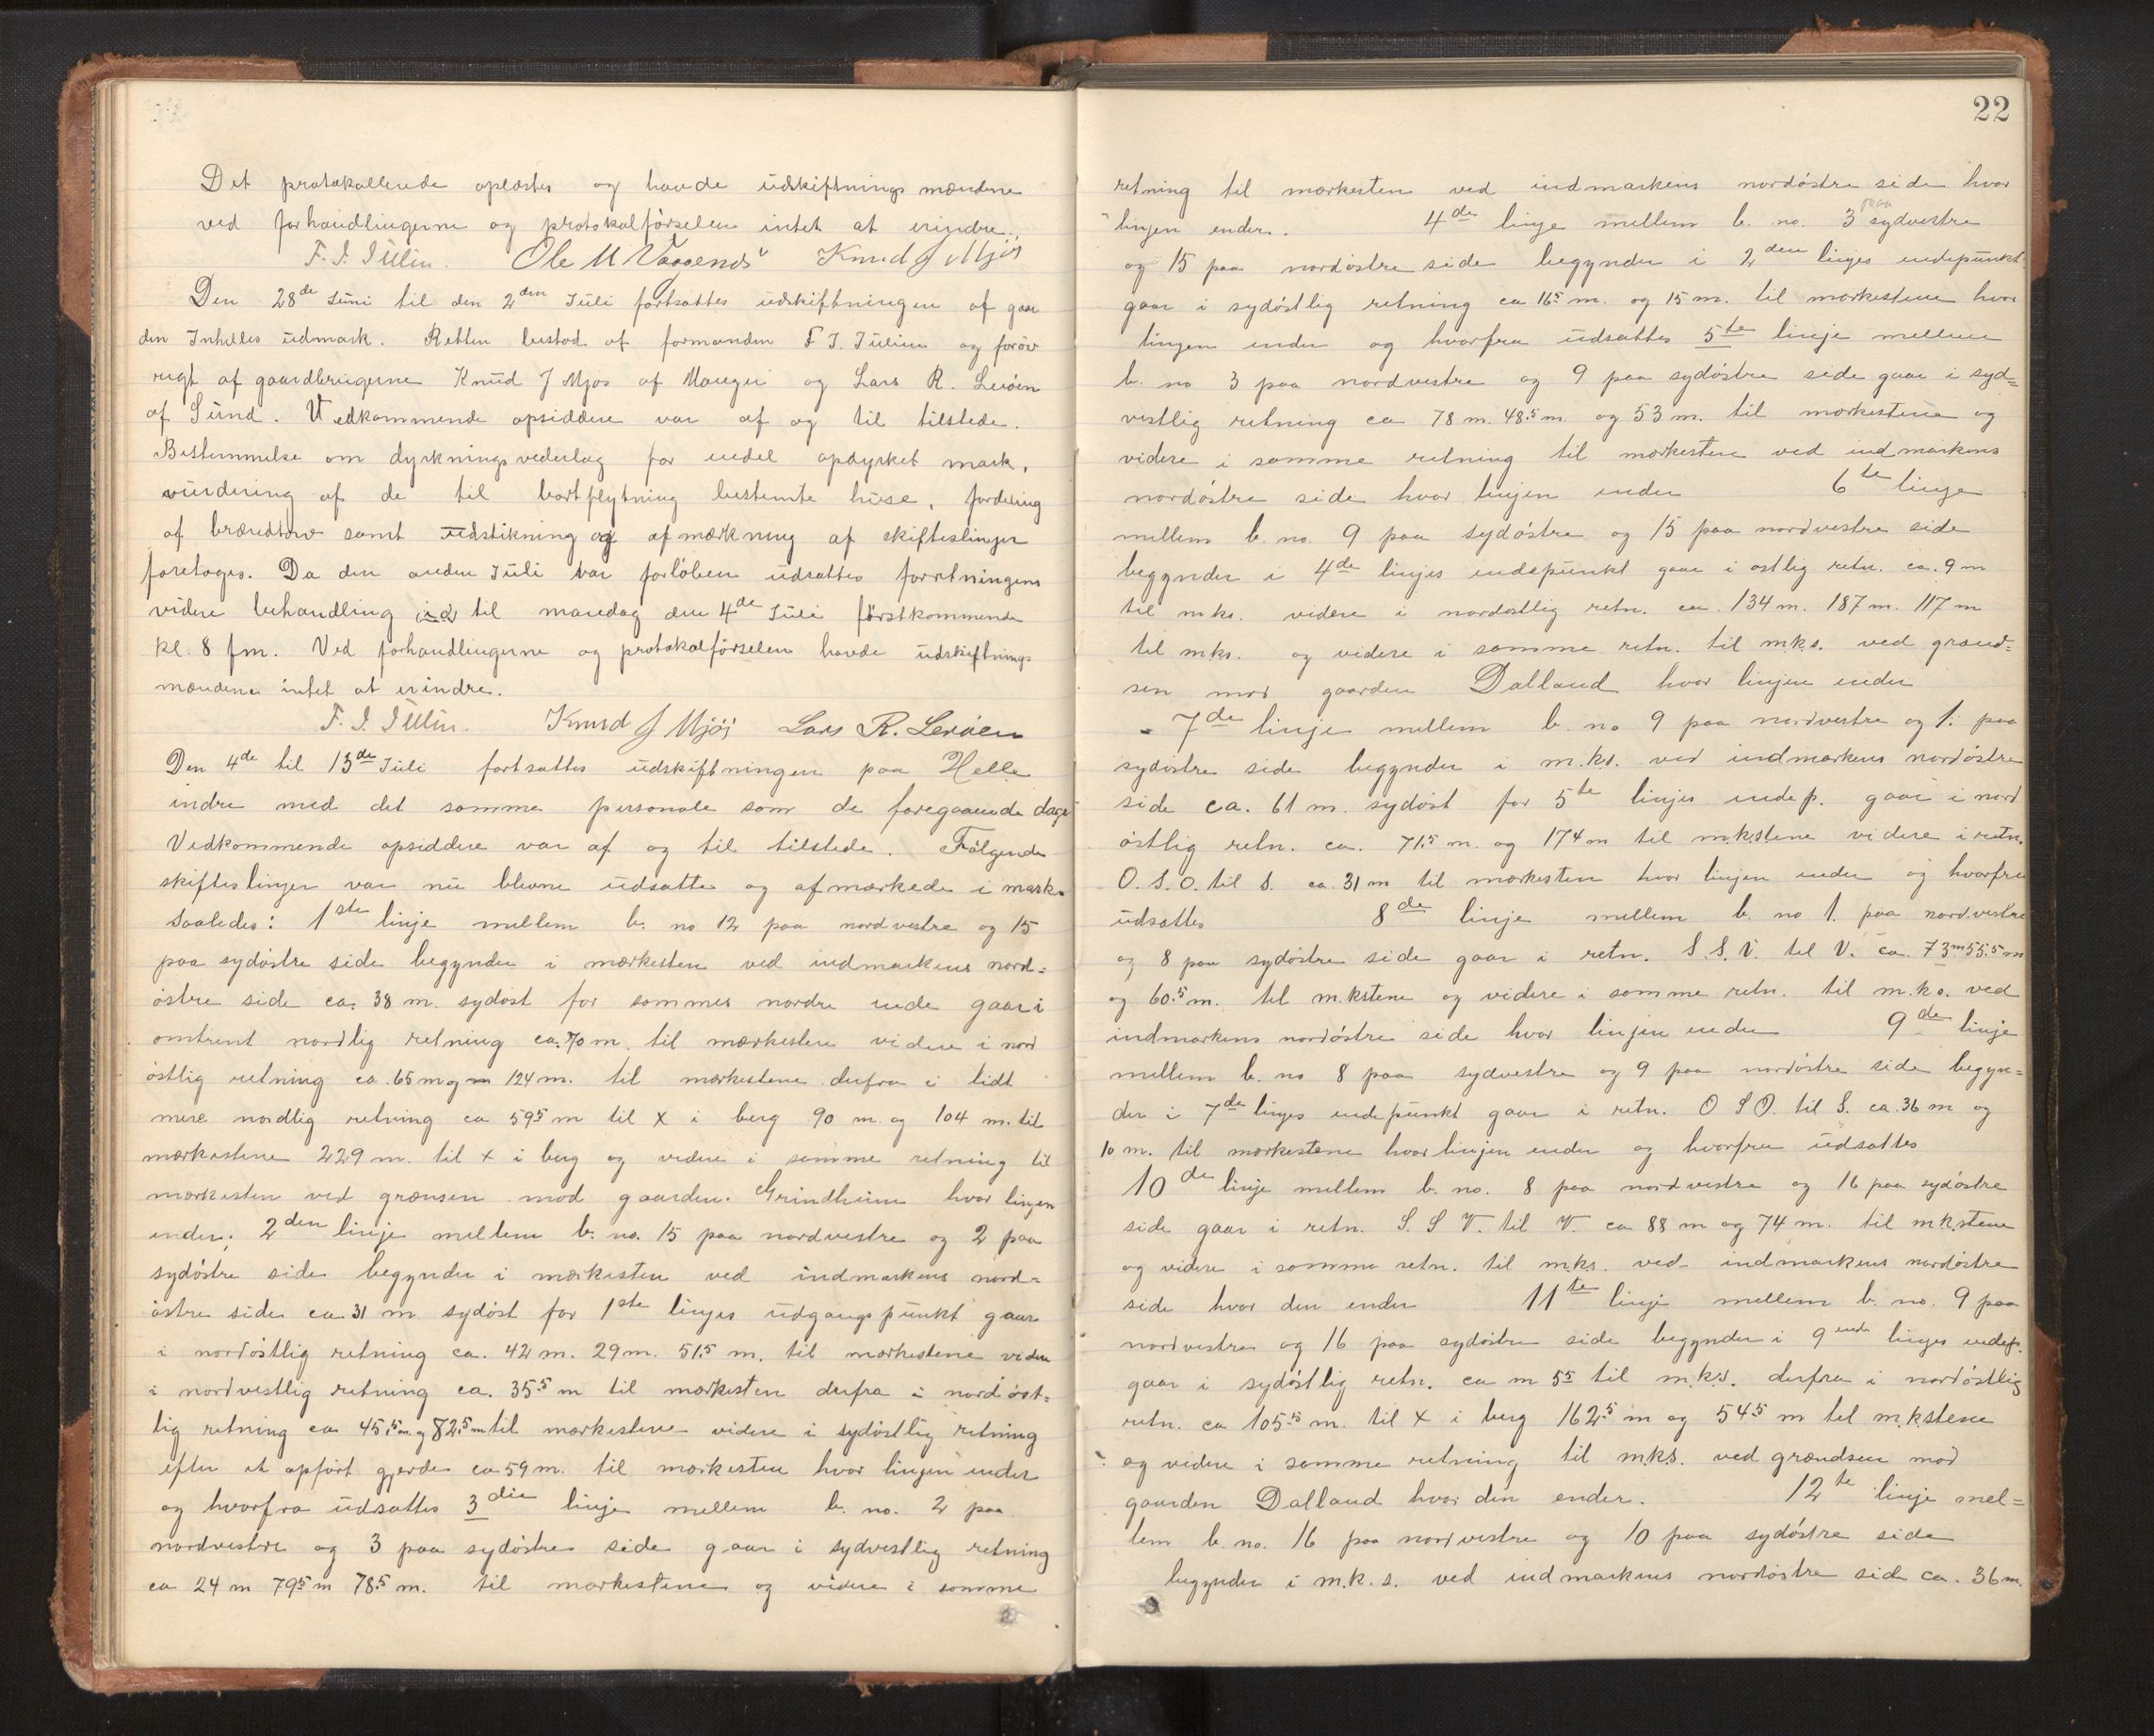 Det protokollerede oplæstes og havde udskiftningsmændene
ved forhandlingerne og protokolførselen intet at erindre.
F. J. Iulin. Ole M Knud J Mjøs
Den 28de Iuni til den 2den Iuli fortsattes udskiftningen af gaar
den Inhelles udmark. Retten bestod af formanden F J. Iulin og forøv
rigt af gaardbrugerne Knud J Mjos af Mauger og Lars R. Lerøen
af Sund. Vedkommende opsiddere var af og til tilstede.
Bestemmelse om dyrkningsvederlag for endel opdyrket mark,
vurdering af de til bortflytning bestemte huse, fordeling
af brændtorv samt udstikning og afmærkning af skifteslinjer
foretoges. Da den anden Iuli var forløben udsattes forretningens
videre behandling ind til mandag den 4de Iuli førstkommende
kl. 8 fm. Ved forhandlingerne og protokolførselen havde udskiftnings
mændene intet at erindre.
F. J. Iulin. Knud J Mjös Lars R. Leröen
Den 4de til 13de Iuli fortsattes udskiftningen paa Helle
indre med det samme personale som de foregaaende dage
Vedkommende opsiddere var af og til tilstede. Følgende
skifteslinjer var nu blevne udsatte og afmærkede i marken
saaledes: 1ste linje mellem b. no 12 paa nordvestre og 15
paa sydøstre side begynder i mærkesten ved indmarkens nord=
østre side ca. 38 m. sydøst for sammes nordre ende gaar i
omtrent nordlig retning ca. 70 m. til mærkestene videre i nord
østlig retning ca. 65 m og 124 m. til mærkestene derfra i lidt
mere nordlig retning ca 59⁵ m til x i berg 90 m. og 104 m. til
mærkestene 229 m. til x i berg og videre i samme retning til
mærkesten ved grænsen mod gaarden Grindheim hvor linjen
ender; 2den linje mellem b. no. 15 paa nordvestre og 2 paa
sydøstre side begynder i mærkesten ved indmarkens nord=
østre side ca. 31 m sydøst for 1ste linjes udgangspunkt gaar
i nordøstlig retning ca. 42 m. 29 m. 51.⁵ m. til mærkestene videre
i nordvestlig retning ca. 35⁵ m til mærkesten derfra i nordøst=
lig retning ca 45.⁵ m. og 82.⁵ m til mærkestene videre i sydøstlig retning
efter et opført gjerde ca 59 m. til mærkesten hvor linjen ender
og hvorfra udsattes 3die linje mellem b. no. 2 paa
nordvestre og 3 paa sydøstre side gaar i sydvestlig retning
ca 24 m 79⁵ m 78.⁵ m. til mærkestene og videre i samme
22
retning til mærkesten ved indmarkens nordøstre side hvor
linjen ender. 4de linje mellem b. no. 3 paa sydvestre
og 15 paa nordøstre side begynder i 2den linjes endepunkt
gaar i sydøstlig retning ca 16⁵ m. og 15 m. til mærkestene hvor
linjen ender og hvorfra udsattes 5te linje mellem
b. no 3 paa nordvestre og 9 paa sydøstre side gaar i syd=
vestlig retning ca 78 m. 48.⁵ m. og 53 m. til mærkestene og
videre i samme retning til mærkesten ved indmarkens
nordøstre side hvor linjen ender 6te linje
mellem b. no. 9 paa sydøstre og 15 paa nordvestre side
begynder i 4de linjes endepunkt gaar i østlig retn. ca. 9 m
til mks. videre i nordøstlig retn. ca. 134 m. 187 m. 117 m
til mks. og videre i samme retn. til m.k.s. ved grænd=
sen mod gaarden Dalland hvor linjen ender
7de linje mellem b. no 9 paa nordvestre og 1. paa
sydøstre side begynder i m.k.s. ved indmarkens nordøstre
side ca. 61 m. sydøst for 5te linjes endep. gaar i nord
østlig retn. ca. 71.⁵ m. og 174 m til m.k.stene videre i retn.
O. S. O. til S. ca 31 m til mærkesten hvor linjen ender og hvorfra
udsattes 8de linje mellem b. no 1. paa nordvestre
og 8 paa sydøstre side gaar i retn. S. S. V. til V. ca. 73 m 55.5 m
og 60.⁵ m. til m.kstene og videre i samme retn. til m.k.s. ved
indmarkens nordøstre side hvor linjen ender 9de linje
mellem b. no 8 paa sydvestre og 9 paa nordøstre side begyn=
der i 7de linjes endepunkt gaar i retn. O S O. til S. ca. 36 m og
10 m. til mærkestene hvor linjen ender og hvorfra udsattes
10de linje mellem b. no. 8 paa nordvestre og 16 paa sydøstre
side gaar i retn. S. S V. til V. ca 88 m og 74 m. til mk.stene
og videre i samme retn. til mks. ved indmarkens nordøstre
side hvor den ender 11te linje mellem b. no. 9 paa
nordvestre og 16 paa sydøstre side begynder i 9ende linjes endep.
gaar i sydøstlig retn. ca m 5⁵ til m.k.s. derfra i nordøstlig
retn. ca 105.⁵ m. til x i berg 162.⁵ m og 54⁵ m til m.k.stene
og videre i samme retning til m.k.s. ved grændsen mod
gaarden Dalland hvor den ender. 12te linje mel=
lem b. no. 16 paa nordvestre og 10 paa sydøstre side
begynder i m.k.s. ved indmarkens nordøstre side ca. 36 m.